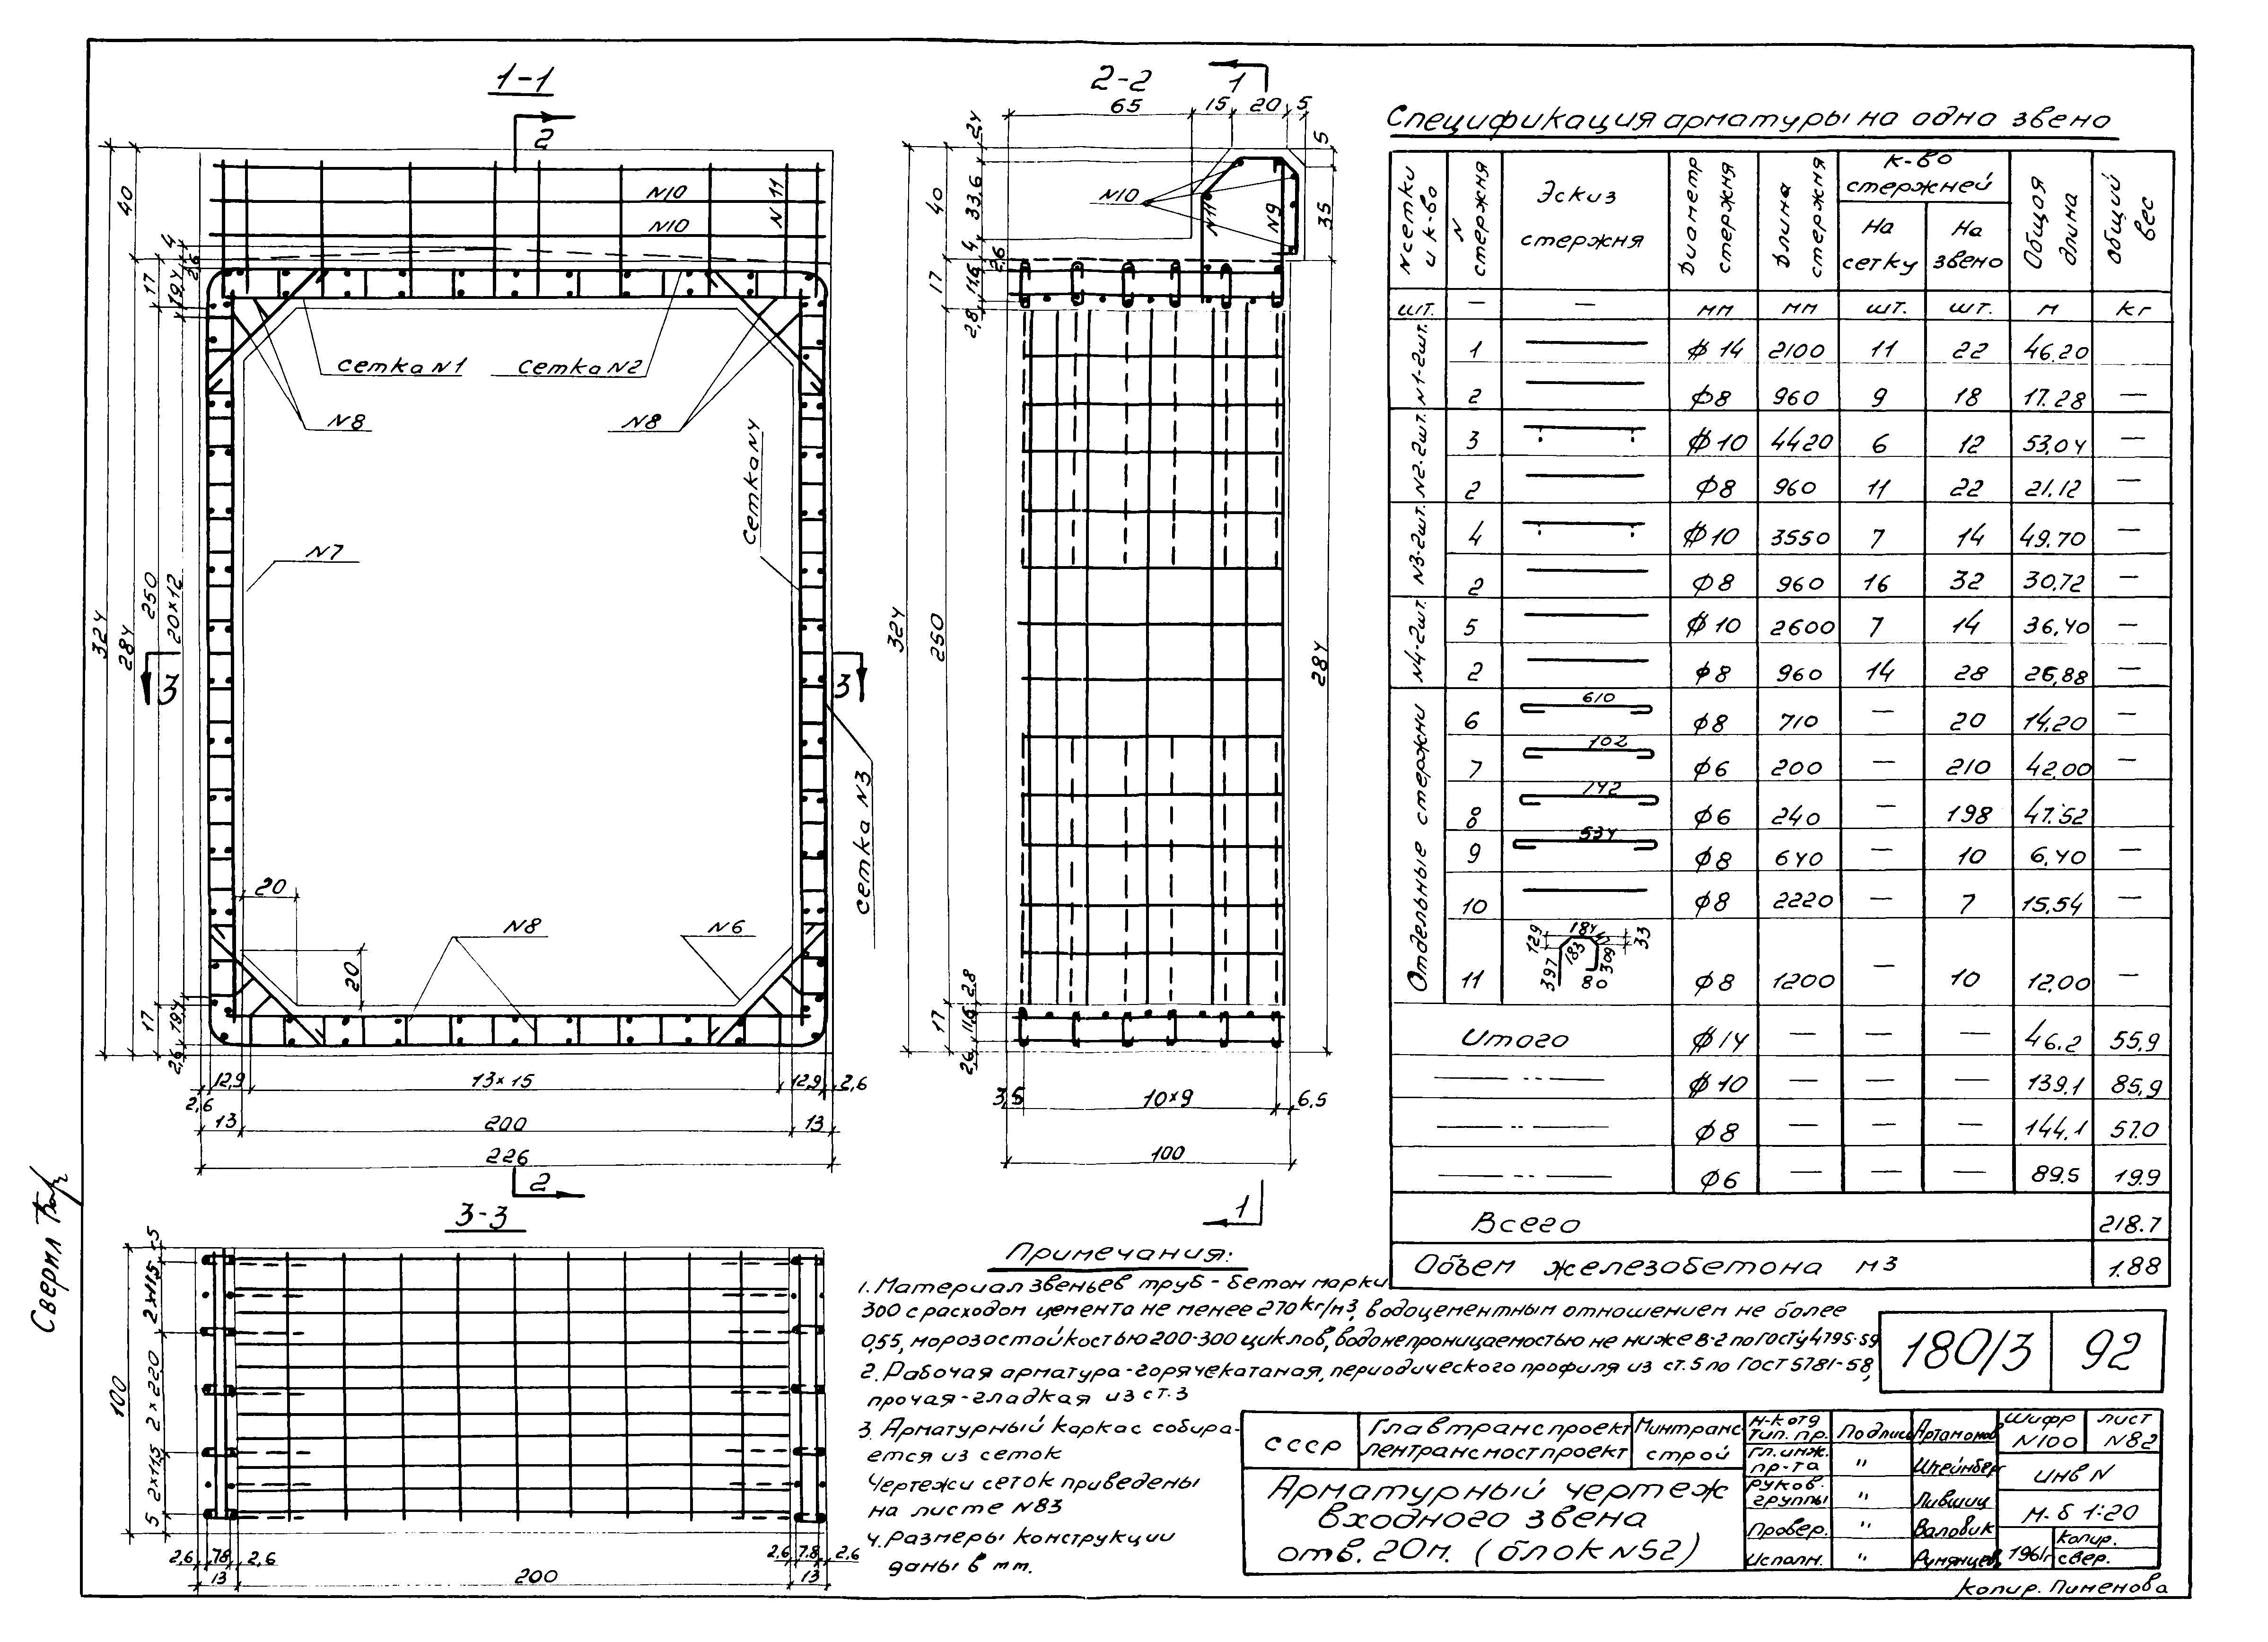 1-1
2
40
17
19,4
4
2,6
324
284
250
20×12
N10
N10
N11
сетка N1
сетка N2
N8
N8
сетка N4
N7
3
3
сетка N3
20
20
N8
N6
17
19,4
2,6
12,9
13×15
12,9
2,6
2,6
13
200
13
226
2
2-2
1
65
15
20
5
5
24
33,6
40
4
2,6
17
11,6
2,8
N10
N11
N9
35
324
250
284
2,8
17
11,6
2,6
3,5
10×9
6,5
100
1
3-3
5
2×11,5
2×220
2×11,5
5
100
2,6
7,8
2,6
13
200
2,6
7,8
2,6
13
Сверил
Спецификация арматуры на одно звено
N сетки и к-во
N стержня
Эскиз стержня
Диаметр стержня
Длина стержня
К-во стержней
На сетку
На звено
Общая длина
Общий вес
шт. — — мм мм шт. шт. м кг
N1-2шт.
1 14 2100 11 22 46.20
2 ф8 960 9 18 17.28 —
N2-2шт.
3 10 4420 6 12 53,04 —
2 ф8 960 11 22 21.12 —
N3-2шт.
4 10 3550 7 14 49.70 —
2 ф8 960 16 32 30,72 —
N4-2шт.
5 10 2600 7 14 36,40 —
2 ф8 960 14 28 26,88 —
Отдельные стержни
6 610 ф8 710 — 20 14,20 —
7 102 ф6 200 — 210 42,00 —
8 142 ф6 240 — 198 47.52
9 534 ф8 640 — 10 6,40 —
10 ф8 2220 — 7 15,54 —
11 129 184 33 183 309 397 80 ф8 1200 — 10 12,00 —
Итого 14 — — — 46.2 55,9
—··— 10 — — — 139.1 85,9
—··— ф8 — — — 144.1 57.0
—··— ф6 — — — 89.5 19.9
Всего 218.7
Объем железобетона м3 1.88
Примечания:
1. Материал звеньев труб - бетон марки
300 с расходом цемента не менее 270кг/м3, водоцементным отношением не более
0,55, морозостойкостью 200-300 циклов, водонепроницаемостью не ниже В-2 по ГОСТу 4795-59
2. Рабочая арматура - горячекатаная, периодического профиля из ст.5 по ГОСТ 5781-58,
прочая - гладкая из ст.3
3. Арматурный каркас собира-
ется из сеток
Чертежи сеток приведены
на листе N83
4. Размеры конструкции
даны в мм.
180/3 92
СССР
Главтранспроект
Лентрансмостпроект
Минтранс
строй
Н-к отд
тип. пр.
Подпись
Артамонов
Гл. инж.
пр-та
"
Штейнберг
Руков.
группы
"
Лившиц
Провер.
"
Валовик
Исполн.
"
Румянцев
Шифр
N100
лист
N82
инв N
М-б 1:20
1961г
копир.
свер.
Арматурный чертеж
входного звена
отв. 20м. (блок N52)
Копир. Пименова